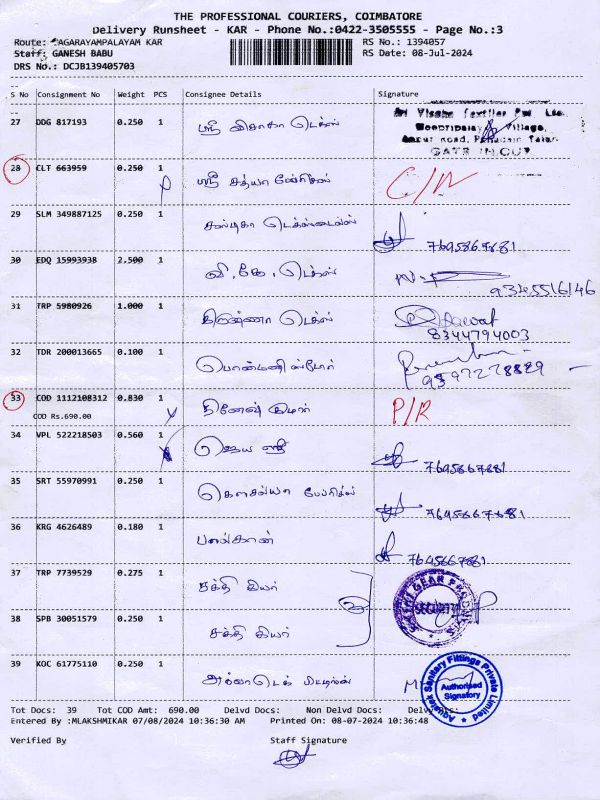 THE PROFESSIONAL COURIERS, COIMBATORE
Delivery Runsheet - KAR - Phone No.:0422-3505555 - Page No.:3
Route: KAR
Staff: GANESH BABU
DRS No.: DCJB139405703
RS No.: 1394057
RS Date: 08-Jul-2024
S No Consignment No Weight PCS Consignee Details Signature
27 DDG 817193 0.250 1 ஸ்ரீ விசாகா டெக்ஸ்
Sri Textiles Pvt. Ltd.
Village,
GATE IN/OUT
28 CLT 663959 0.250 1 ஸ்ரீ சத்யா C/N
29 SLM 349887125 0.250 1 7695867881
30 EDQ 15993938 2.500 1 வி.கே. டெக்ஸ் 9345516146
31 TRP 5980926 1.000 1 டெக்ஸ்
8344794003
32 TDR 200013665 0.100 1
33 COD 1112108312 0.830 1 தினேஷ் குமார் P/R
COD Rs.690.00
34 VPL 522218503 0.560 1 ஜெய ஸ்ரீ 7695667881
35 SRT 55970991 0.250 1 கௌசல்யா
36 KRG 4626489 0.180 1 7645667881
37 TRP 7739529 0.275 1 சக்தி கியர்
SECURITY
38 SPB 30051579 0.250 1 சக்தி கியர்
39 KOC 61775110 0.250 1
Aquatek Sanitary Fittings Private Limited
Authorised
Signatory
Tot Docs: 39 Tot COD Amt: 690.00 Delvd Docs: Non Delvd Docs:
Entered By :MLAKSHMIKAR 07/08/2024 10:36:30 AM Printed On: 08-07-2024 10:36:48
Verified By Staff Signature